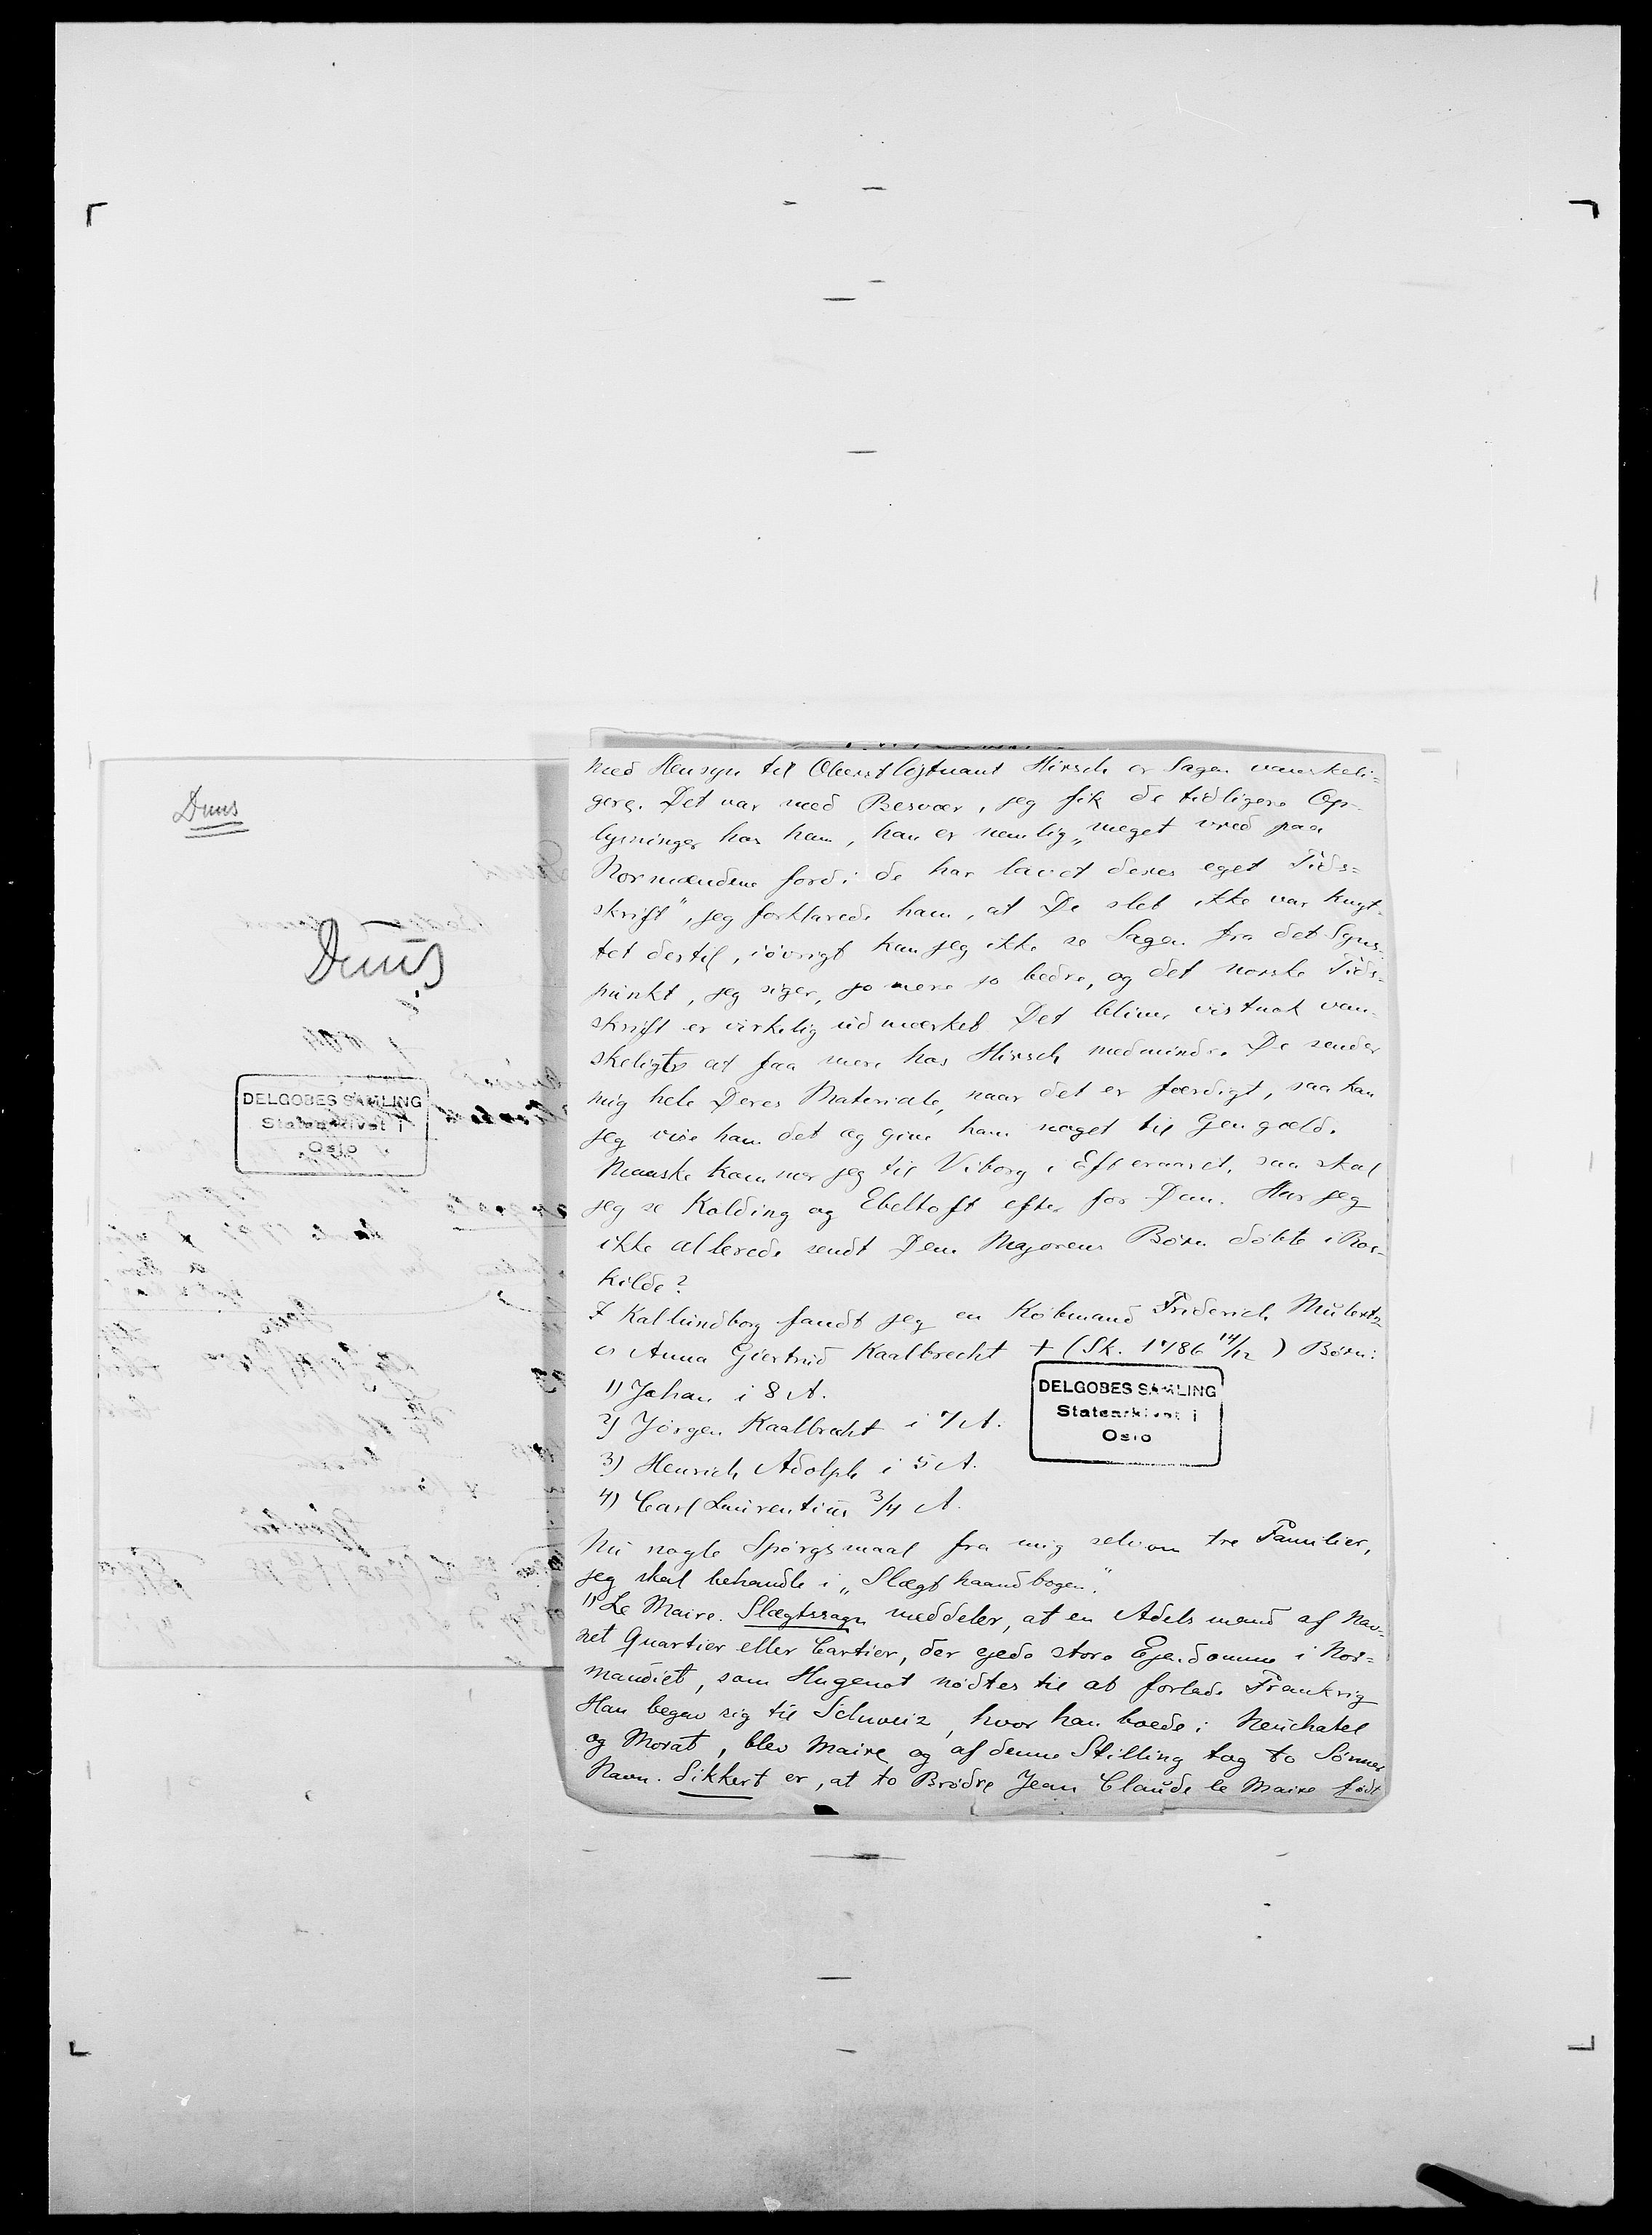 Duus
Duus
DELGOBES SAMLING
Statsarkivet i
Oslo
Med Hensyn til Oberstløjtnant Hirsch er Sagen vanskeli-
gere. Det var med Besvær, jeg fik de tidligere Op-
lysninger hos ham, han er nemlig „meget vred paa
Normændene fordi de har lavet deres eget Tids=
skrift", jeg forklarede ham, at De slet ikke var knyt-
tet dertil, iøvrigt kan jeg ikke se Sagen fra det Syns-
punkt, jeg siger, jo mere jo bedre, og det norske Tids-
skrift er virkelig udmærket Det bliver vistnok van-
skeligt at faa mere hos Hirsch medmindre De sender
mig hele Deres Materiale, naar det er færdigt, saa kan
jeg vise ham det og give ham noget til Gengæld.
Maaske kommer jeg til Viborg i Efteraaret, saa skal
jeg se Kolding og Ebeltoft efter for Dem. Har jeg
ikke allerede sendt Dem Majorens Børn døbte i Ros-
kilde?
I Kallundborg fandt jeg en Købmand Friderich Mülertz
∞ Anna Giertrud Kaalbrecht + (Sk. 1786 14/12) Børn:
1) Johan i 8 A.
2) Jörgen Kaalbrecht i 7 A.
3) Henrich Adolph i 5 A.
4) Carl Laurentius 3/4 A.
DELGOBES SAMLING
Statsarkivet i
Oslo
Nu nogle Spørgsmaal fra mig selv om tre Familier,
jeg skal behandle i „Slægthaandbogen".
1) Le Maire. Slægtssagn meddeler, at en Adelsmand af Nav-
net Quartier eller Cartier, der ejede store Ejendomme i Nor=
mandiet, som Hugenot nødtes til at forlade Frankrig
Han begav sig til Schweiz, hvor han boede i Neuchatel
og Morat, blev Maire og af denne Stilling tog to Sønner
Navn. Sikkert er, at to Brødre Jean Claude le Maire født